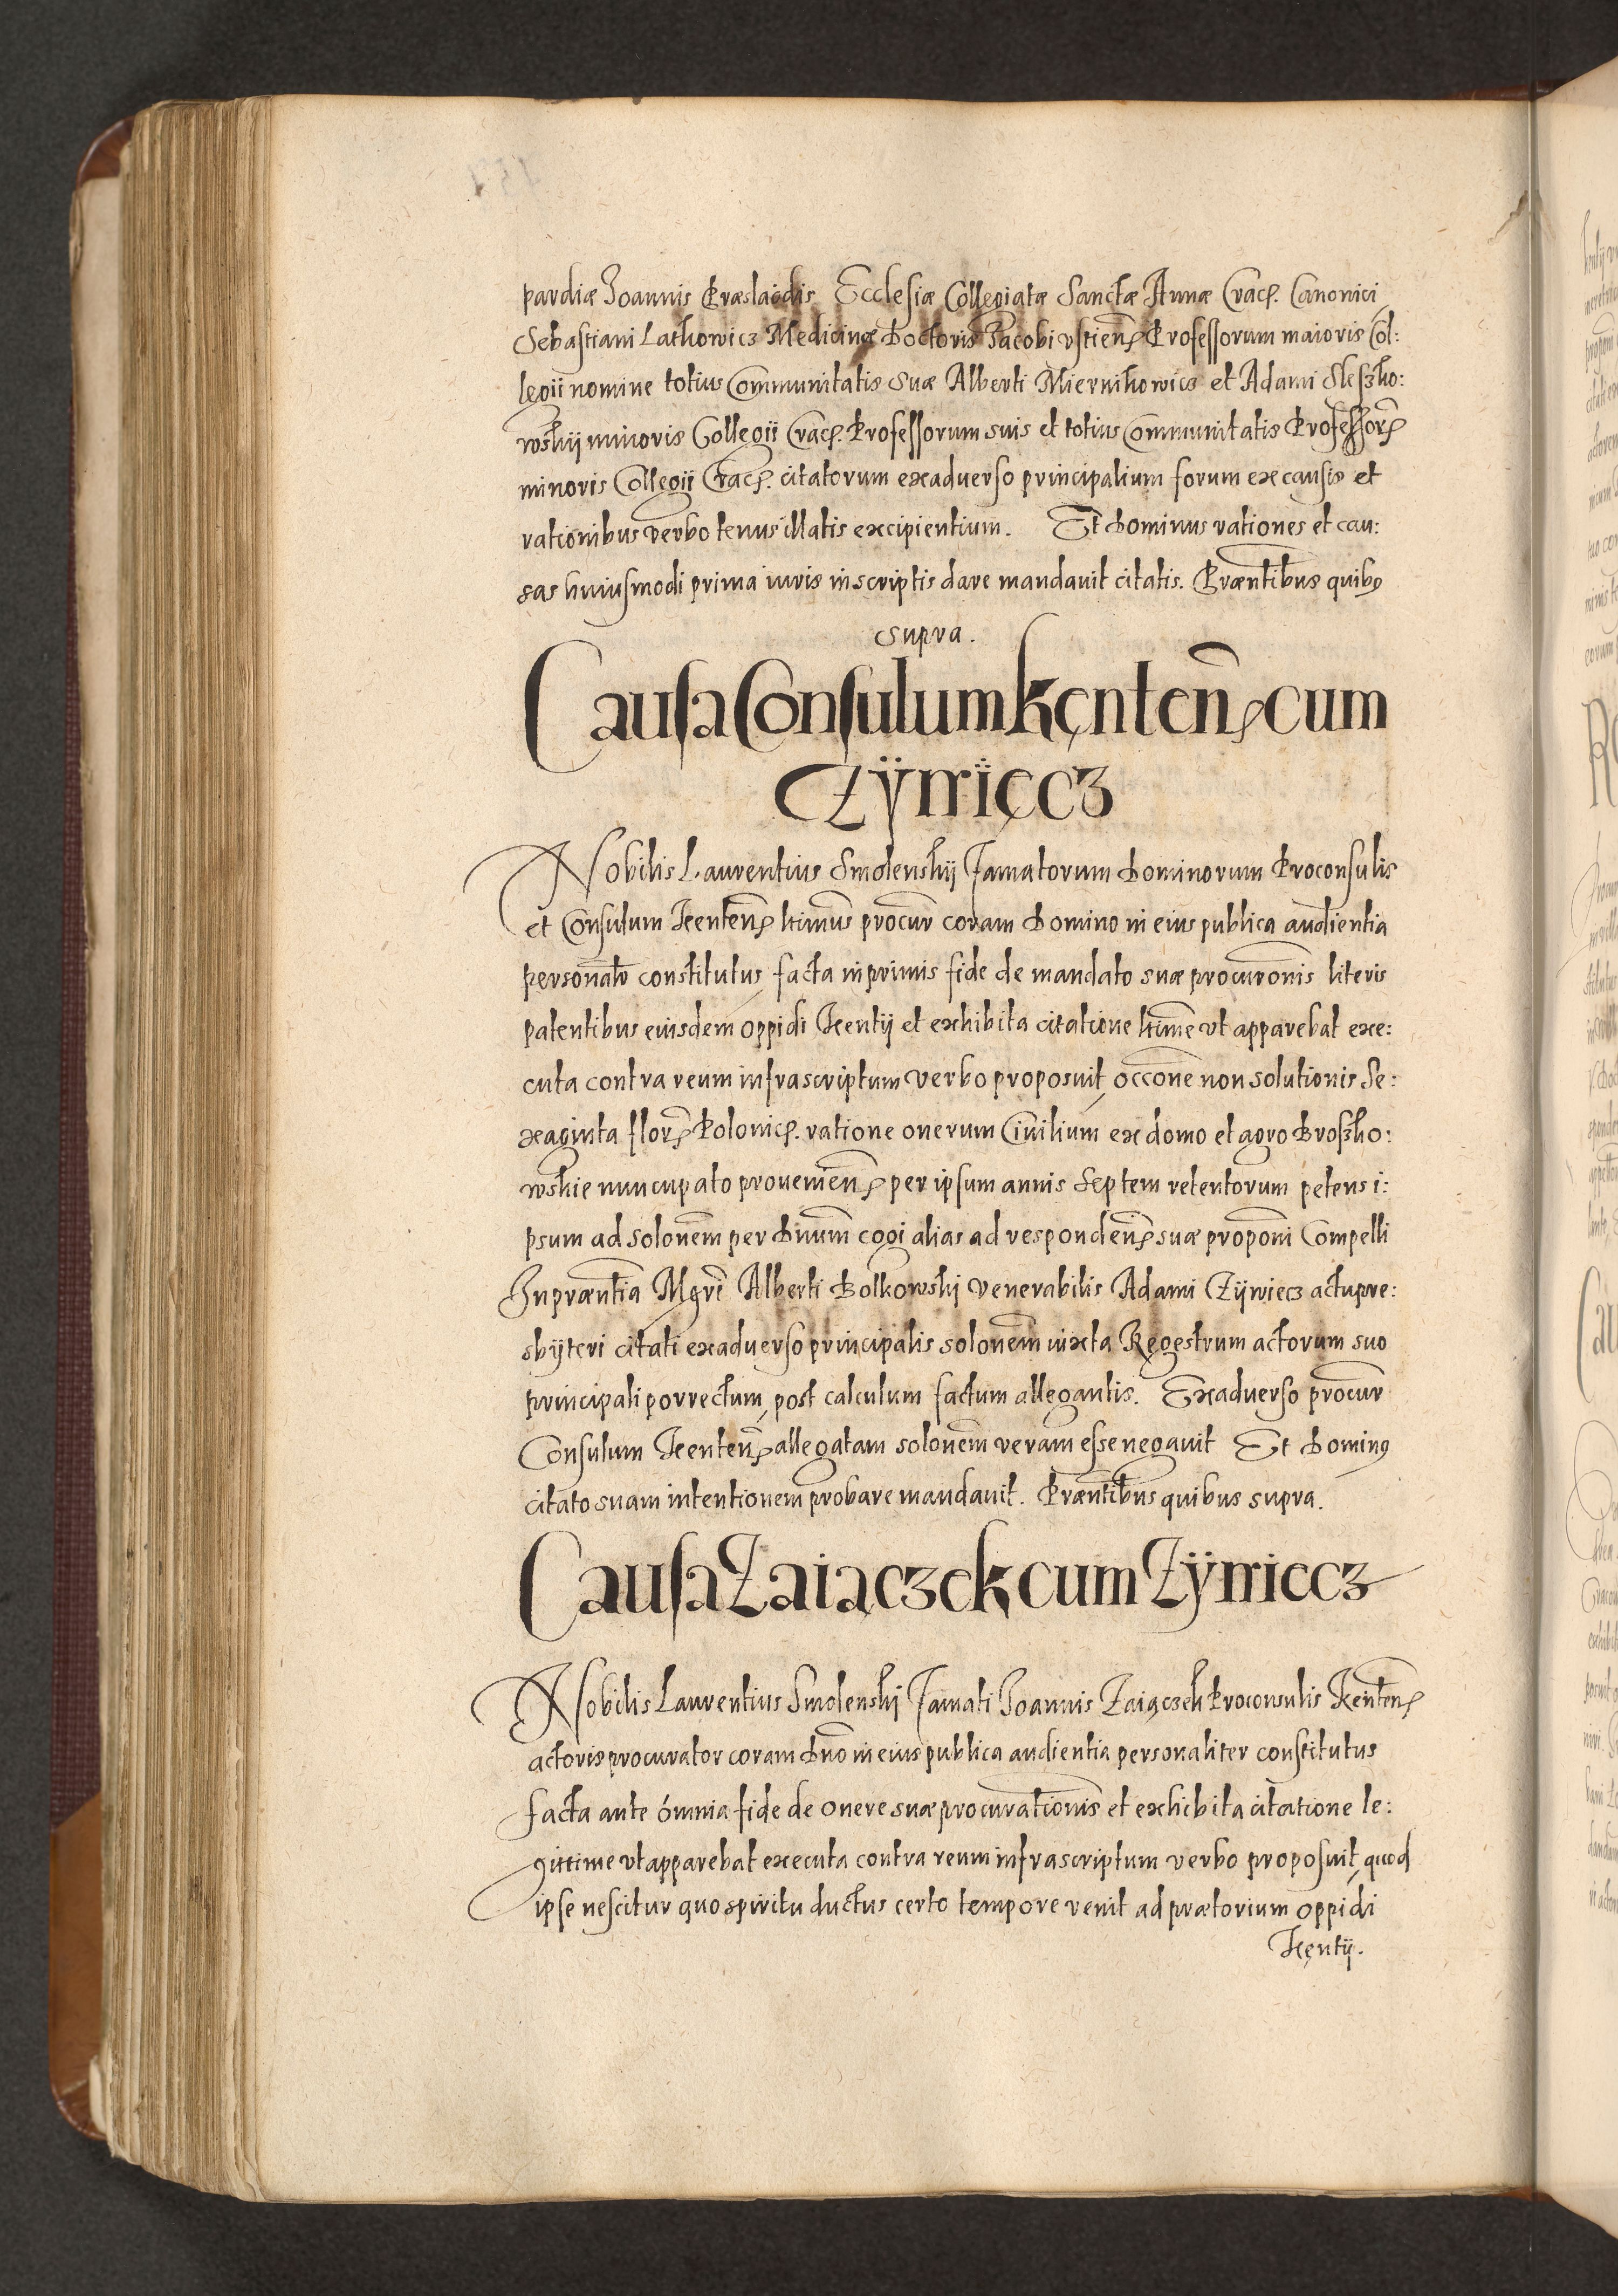 pardiæ Joannis Præslaidis Ecclesiæ Collegiatæ Sanctæ Annæ Crac. Canonici
Sebastiani Lathowicz Medicinæ Doctoris Jacobi Vstien. Professorum maioris Col:
legii nomine totius Communitatis suæ Alberti Miernikowicz et Adami Sleszko:
wskij minoris Collegii Crac. Professorum suis et totius Communitatis Professor.
minoris Collegii Crac. citatorum exaduerso principalium forum ex causis et
rationibus verbo tenus illatis excipientium. Et Dominus rationes et cau:
sas huiusmodi prima iuris in scriptis dare mandauit citatis. Præntibus quibus
supra.
Causa Consulum Kęnten. cum
Zÿwięcz
Nobilis Laurentius Smolenskij Famatorum Dominorum Proconsulis
et Consulum Kenten. ltimus procur coram Domino in eius publica audientia
personalr constitutus, facta inprimis fide de mandato suæ procuronis literis
patentibus eiusdem oppidi Kentij et exhibita citatione ltime vt apparebat exe:
cuta contra reum infrascriptum verbo proposuit, occone non solutionis Se:
xaginta flor. Polonic. ratione onerum Ciuilium ex domo et agro Broszko:
wskie nuncupato prouenien. per ipsum annis Septem retentorum petens i:
psum ad solonem per Dnum cogi alias ad responden. suæ proponi Compelli
In præntia Mgri Alberti Bolkowskj Venerabilis Adami Zÿwiecz actu pre:
sbÿteri citati exaduerso principalis solonem iuxta Regestrum actorum suo
principali porrectum, post calculum factum allegantis. Exaduerso procur
Consulum Kenten. allegatam solonem veram esse negauit Et Dominus
citato suam intentionem probare mandauit. Præntibus quibus supra.
Causa Zaiączek cum Zÿwiecz
Nobilis Laurentius Smolenskj Famati Joannis Zaiączek Proconsulis Kenten.
actoris procurator coram Dno in eius publica audientia personaliter constitutus
facta ante ómnia fide de onere suæ procurationis et exhibita citatione le:
gittime vt apparebat executa contra reum infrascriptum verbo proposuit, quod
ipse nescitur quo spiritu ductus certo tempore venit ad prætorium oppidi
Kęntij.